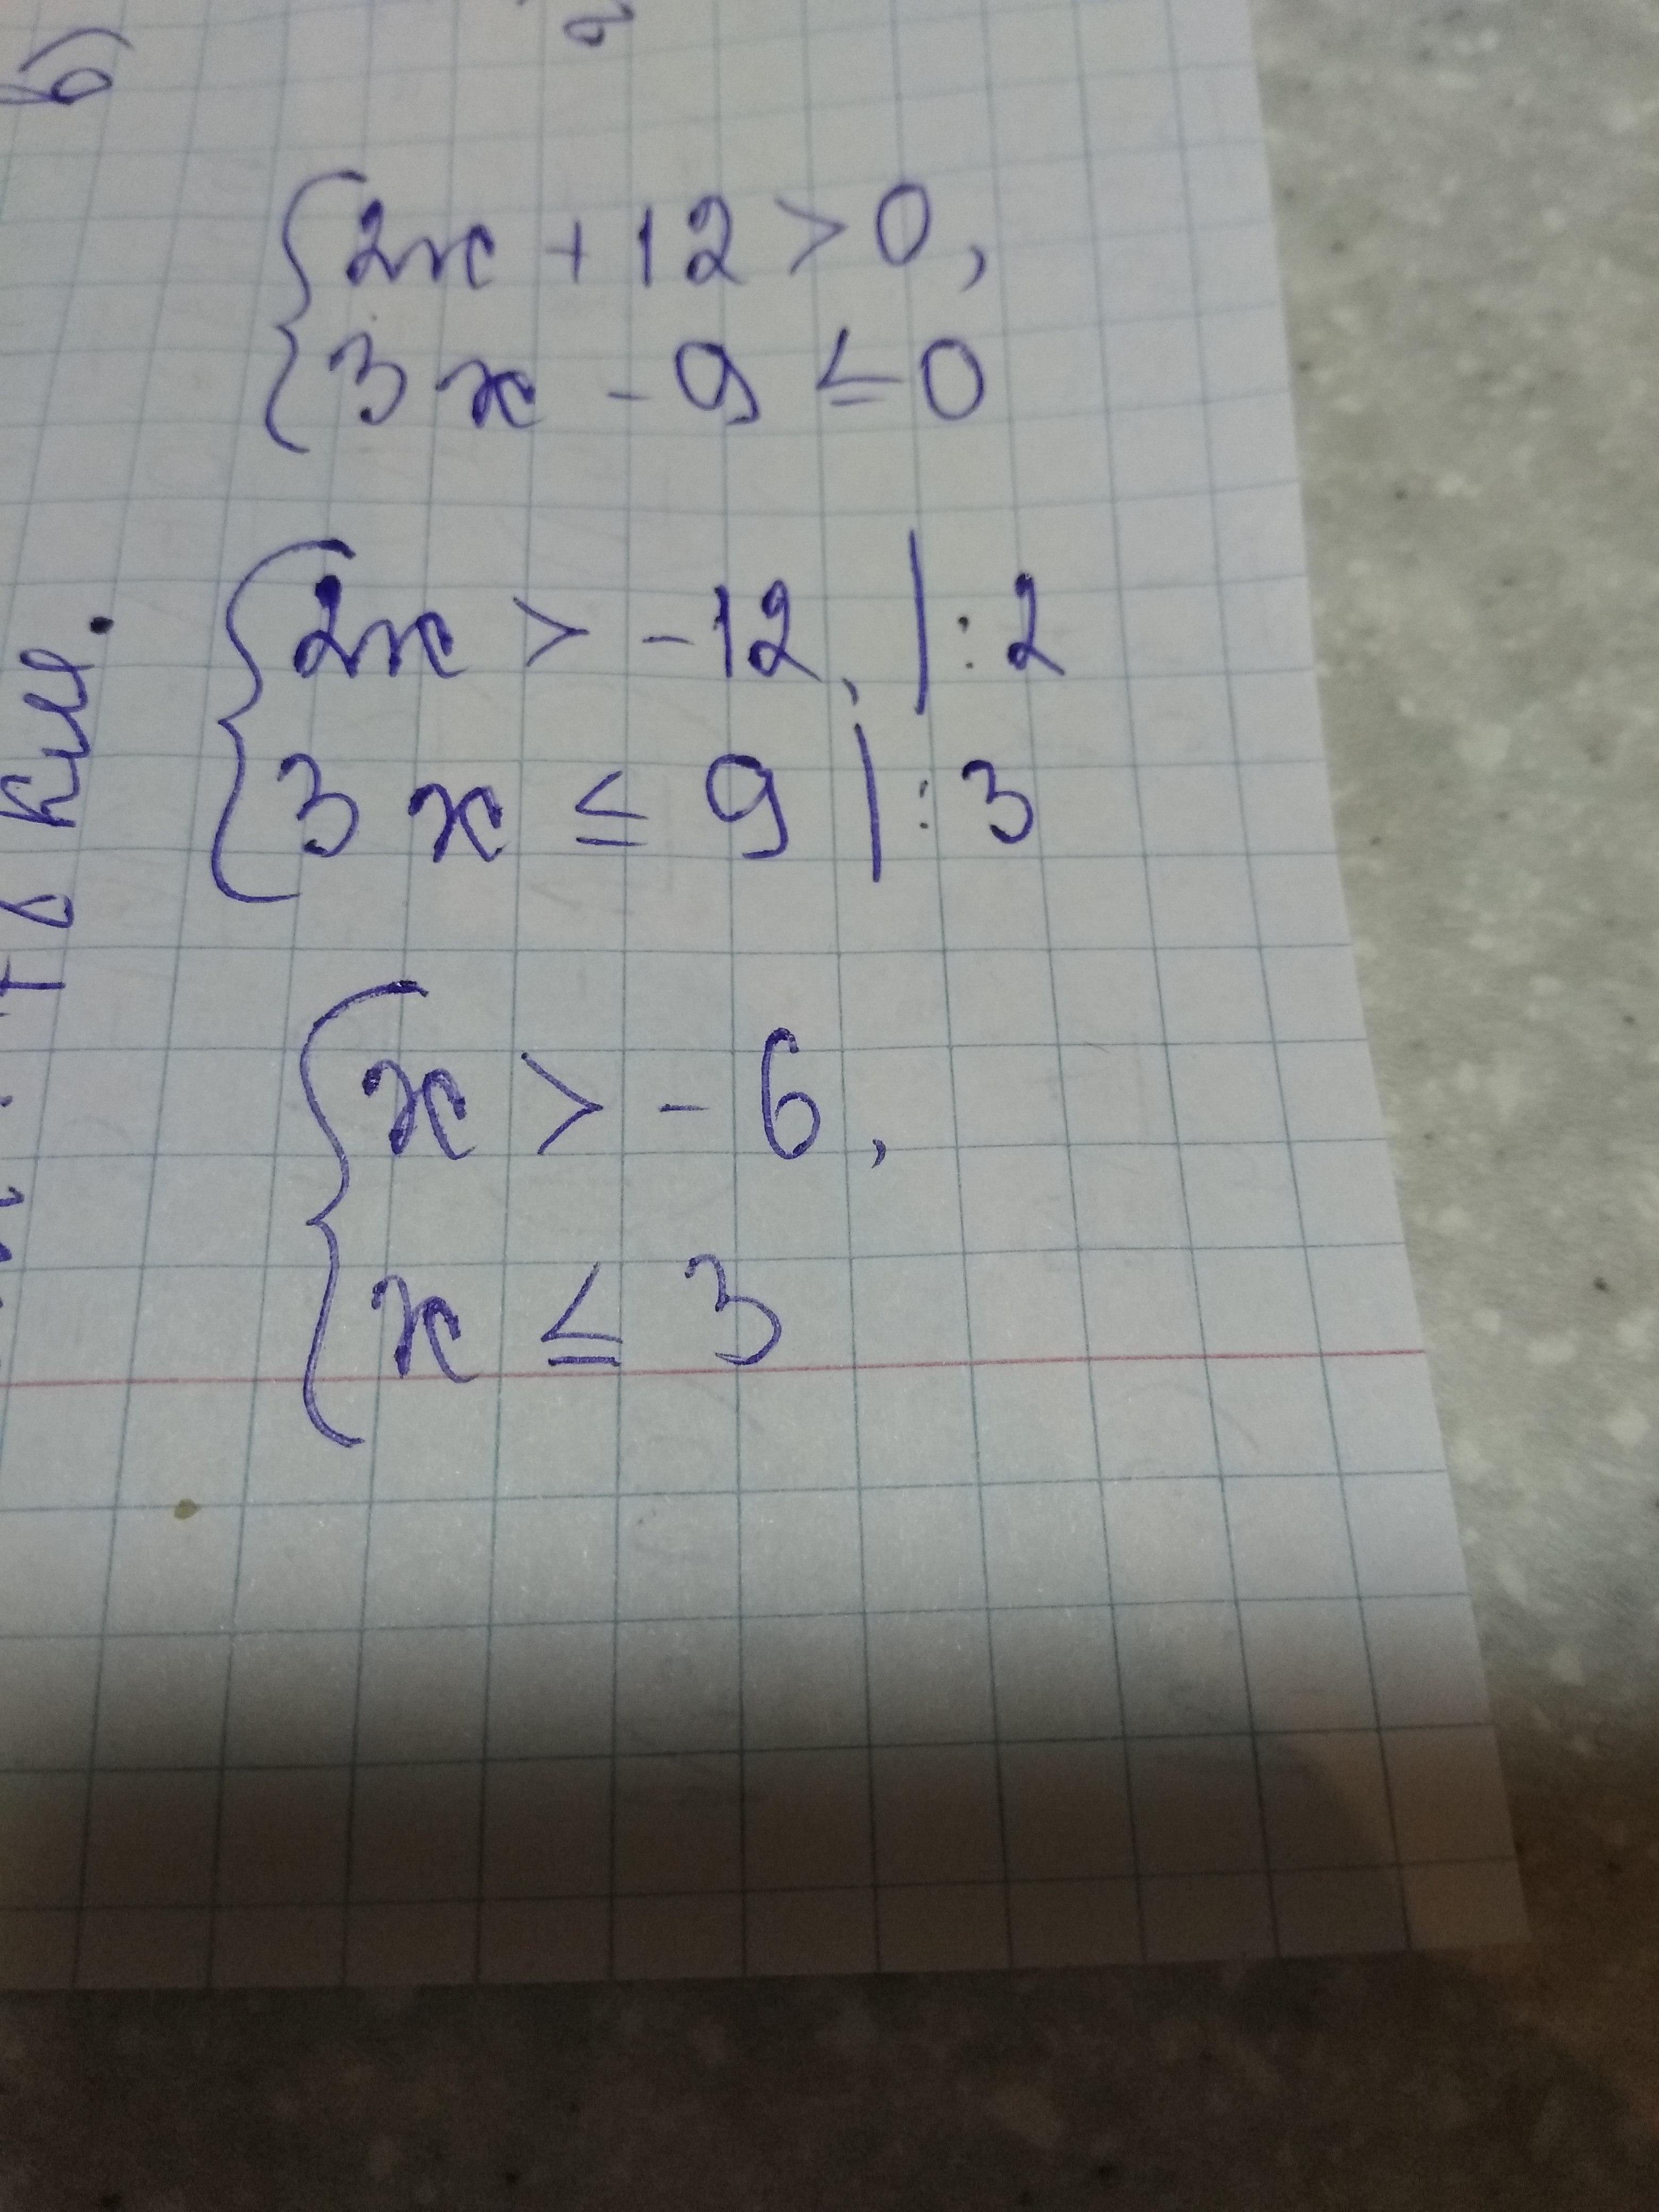 {2x + 12 > 0,
{3x - 9 ≤ 0
{2x > -12, |:2
{3x ≤ 9 |:3
{x > -6,
{x ≤ 3